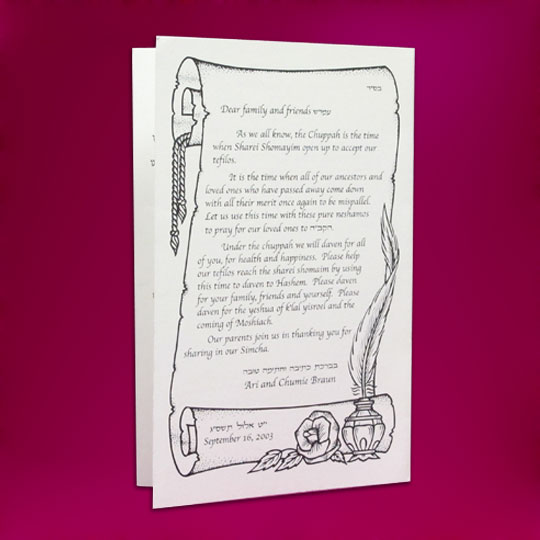 בסיד
Dear family and friends עמו״ש
As we all know, the Chuppah is the time
when Sharei Shomayim open up to accept our
tefilos.
It is the time when all of our ancestors and
loved ones who have passed away come down
with all their merit once again to be mispallel.
Let us use this time with these pure neshamos
to pray for our loved ones to הקב״ה.
Under the chuppah we will daven for all
of you, for health and happiness. Please help
our tefilos reach the sharei shomaim by using
this time to daven to Hashem. Please daven
for your family, friends and yourself. Please
daven for the yeshua of k'lal yisroel and the
coming of Moshiach.
Our parents join us in thanking you for
sharing in our Simcha.
בברכת כתיבה וחתימה טובה
Ari and Chumie Braun
י״ט אלול תשס״ג
September 16, 2003